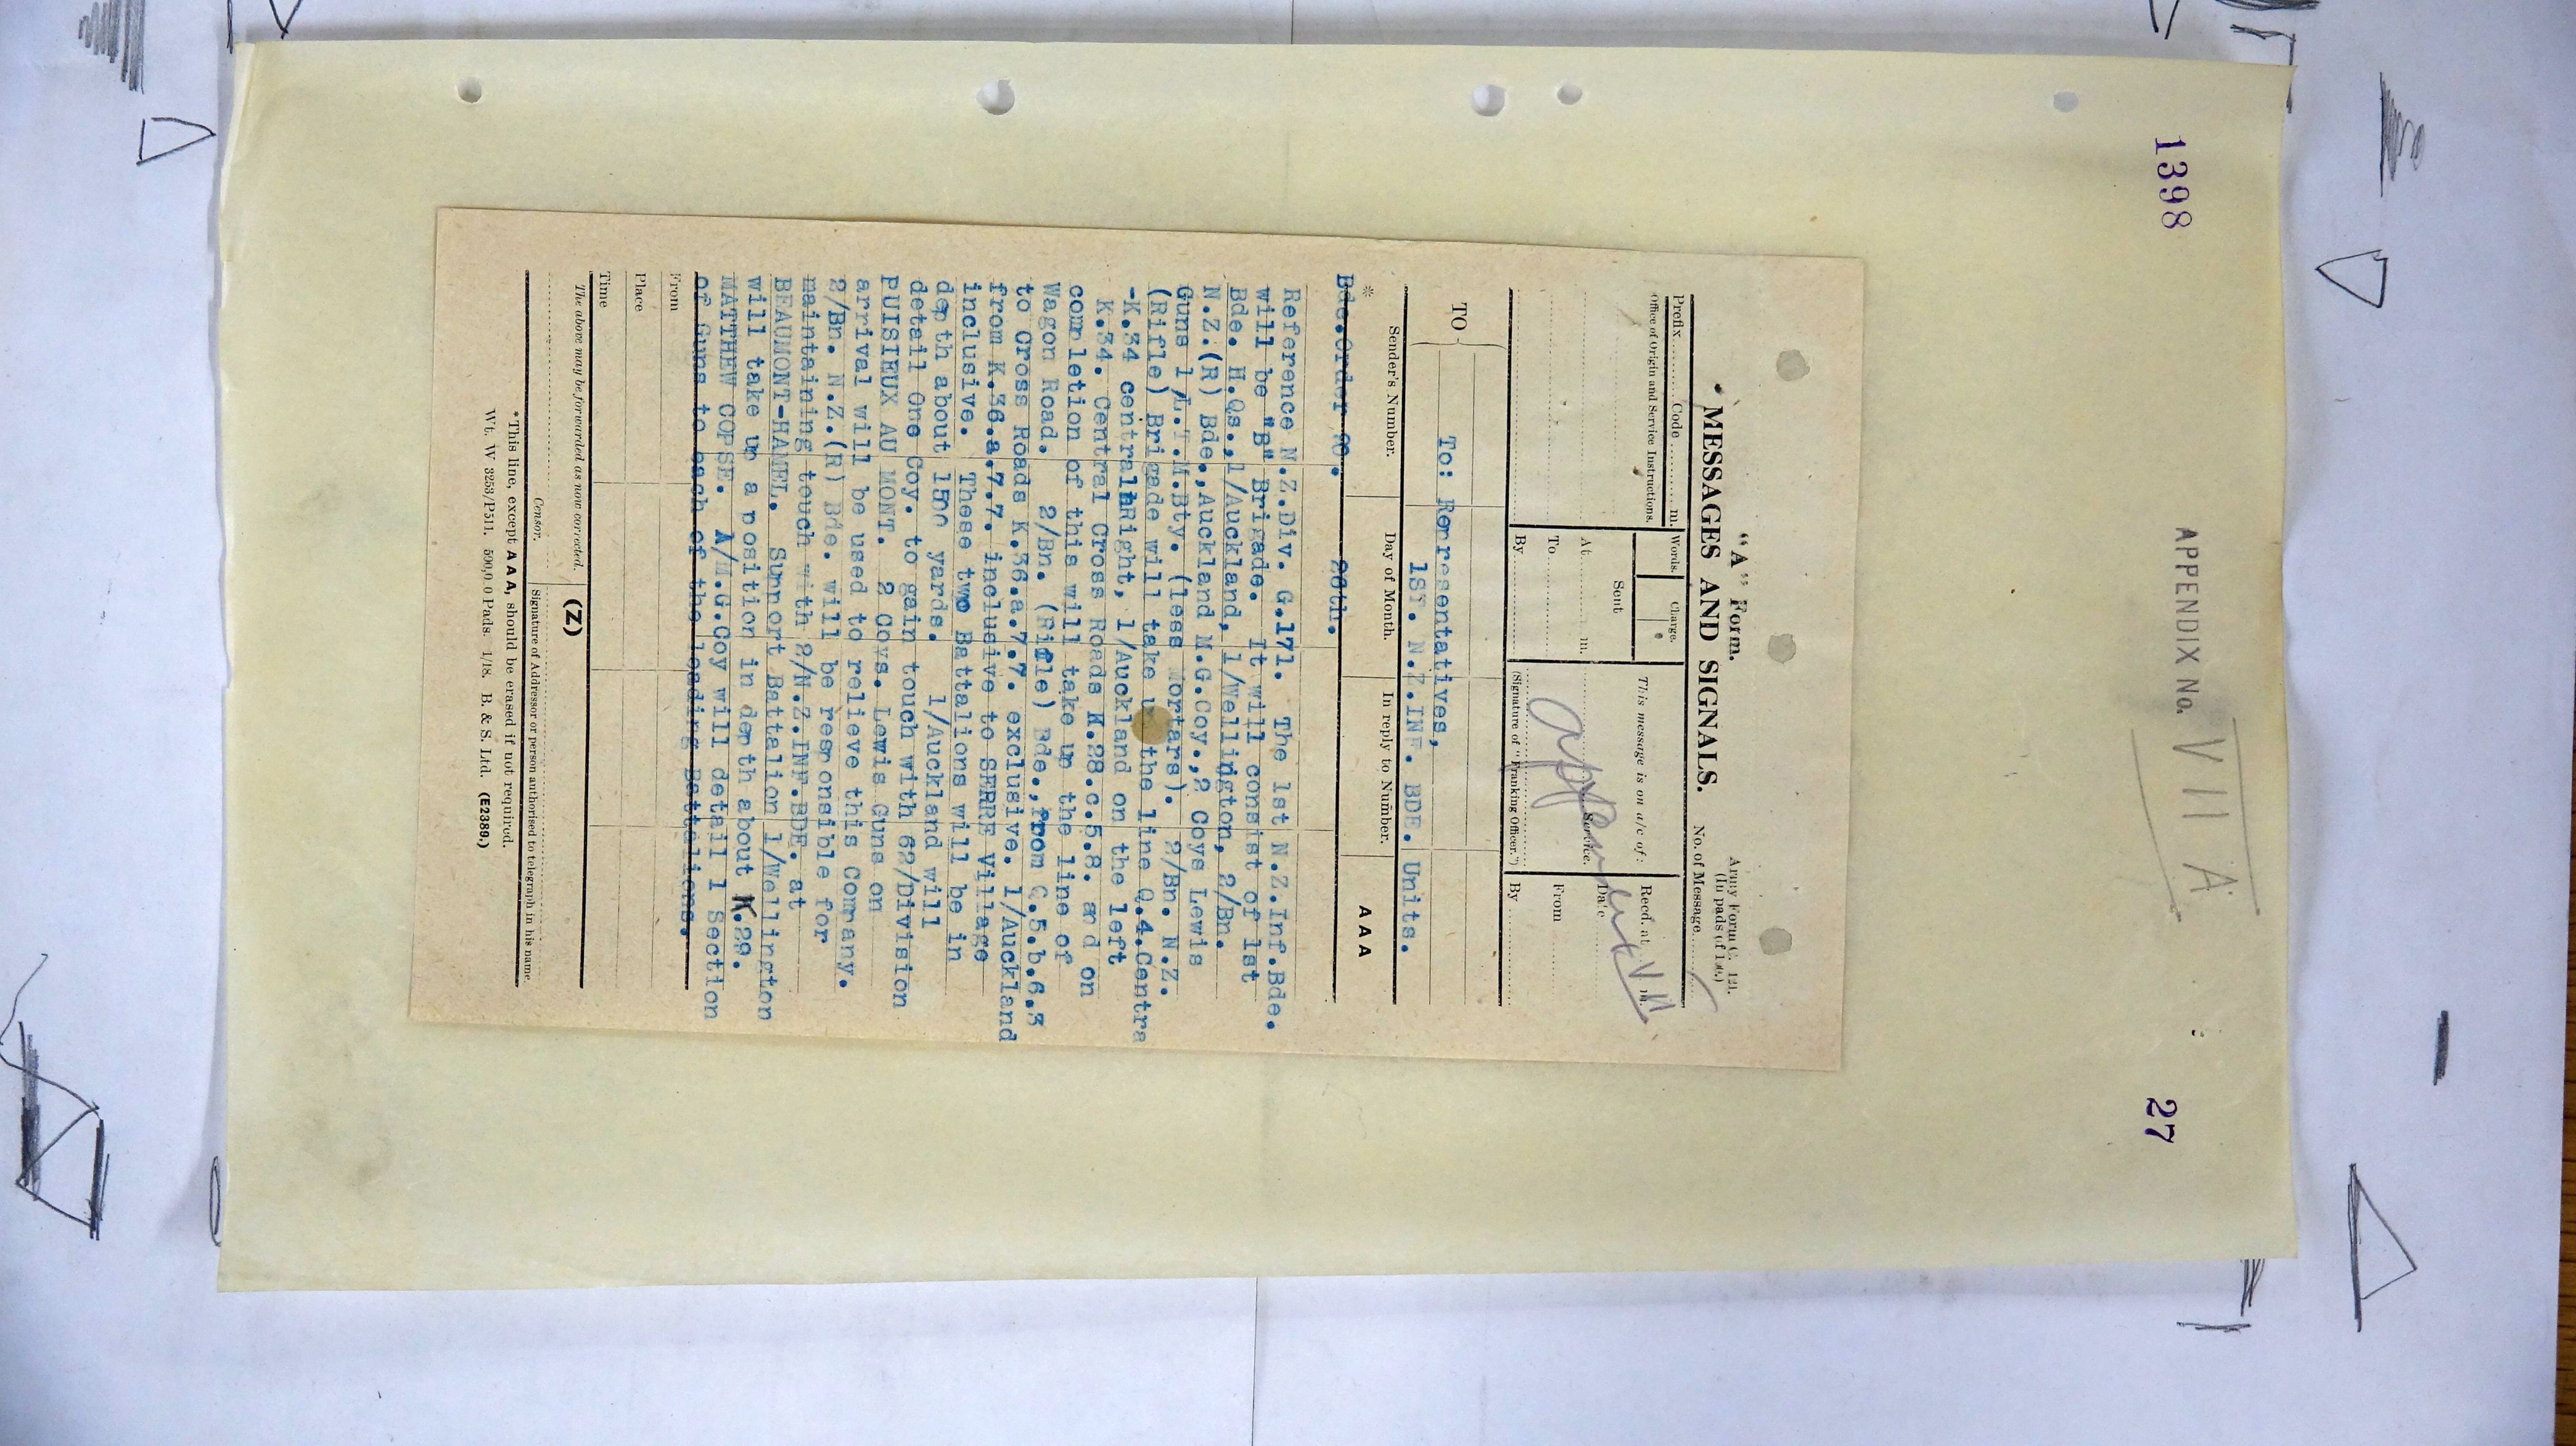 1398
27
APPENDIX No. VII A
"A" Form.
Army Form C. 121.
MESSAGES AND SIGNALS.
No. of Message
Prefix Code m.
Words.
Charge.
This message is on a/c of:
Recd. at m.
Office of Origin and Service Instructions.
Sent
Date
At m.
Service.
From
To
By
(Signature of "Franking Officer.")
By
Appendix VII
TO
To: Representatives,
1ST. N.Z.INF. BDE. Units.
* Sender's Number.
Day of Month.
In reply to Number.
AAA
Bde.Order 26th.
Reference N.Z.Div. G.171. The 1st N.Z.Inf.Bde.
will be "B" Brigade. It will consist of 1st
Bde. H.Qs.,1/Auckland, 1/Wellington, 2/Bn.
N.Z.(R) Bde.,Auckland M.G.Coy.,2 Coys Lewis
Guns 1/L.T.M.Bty. (less Mortars). 2/Bn. N.Z.
(Rifle) Brigade will take up the line Q.4.Centra
-K.34 central Right, 1/Auckland on the left
K.34. Central Cross Roads K.28.c.5.8. and on
completion of this will take up the line of
Wagon Road. 2/Bn. (Rifle) Bde.,from Q.5.b.6.3
to Cross Roads K.36.a.7.7. exclusive. 1/Auckland
from K.36.a.7.7. inclusive to SERRE Village
inclusive. These two Battalions will be in
depth about 1500 yards. 1/Auckland will
detail One Coy. to gain touch with 62/Division
PUISIEUX AU MONT. 2 Coys. Lewis Guns on
arrival will be used to relieve this Company.
2/Bn. N.Z.(R) Bde. will be responsible for
maintaining touch with 2/N.Z.INF.BDE. at
BEAUMONT-HAMEL. Support Battalion 1/Wellington
will take up a position in depth about K.29.
MATTHEW COPSE. A/M.G.Coy will detail 1 Section
of Guns to each of the leading Battalions.
From
Place
Time
The above may be forwarded as now corrected.
(Z)
Censor.
Signature of Addressor or person authorised to telegraph in his name
*This line, except AAA, should be erased if not required.
Wt. W 3253/P511. 500,0 0 Pads. 1/18. B. & S. Ltd. (E2389.)